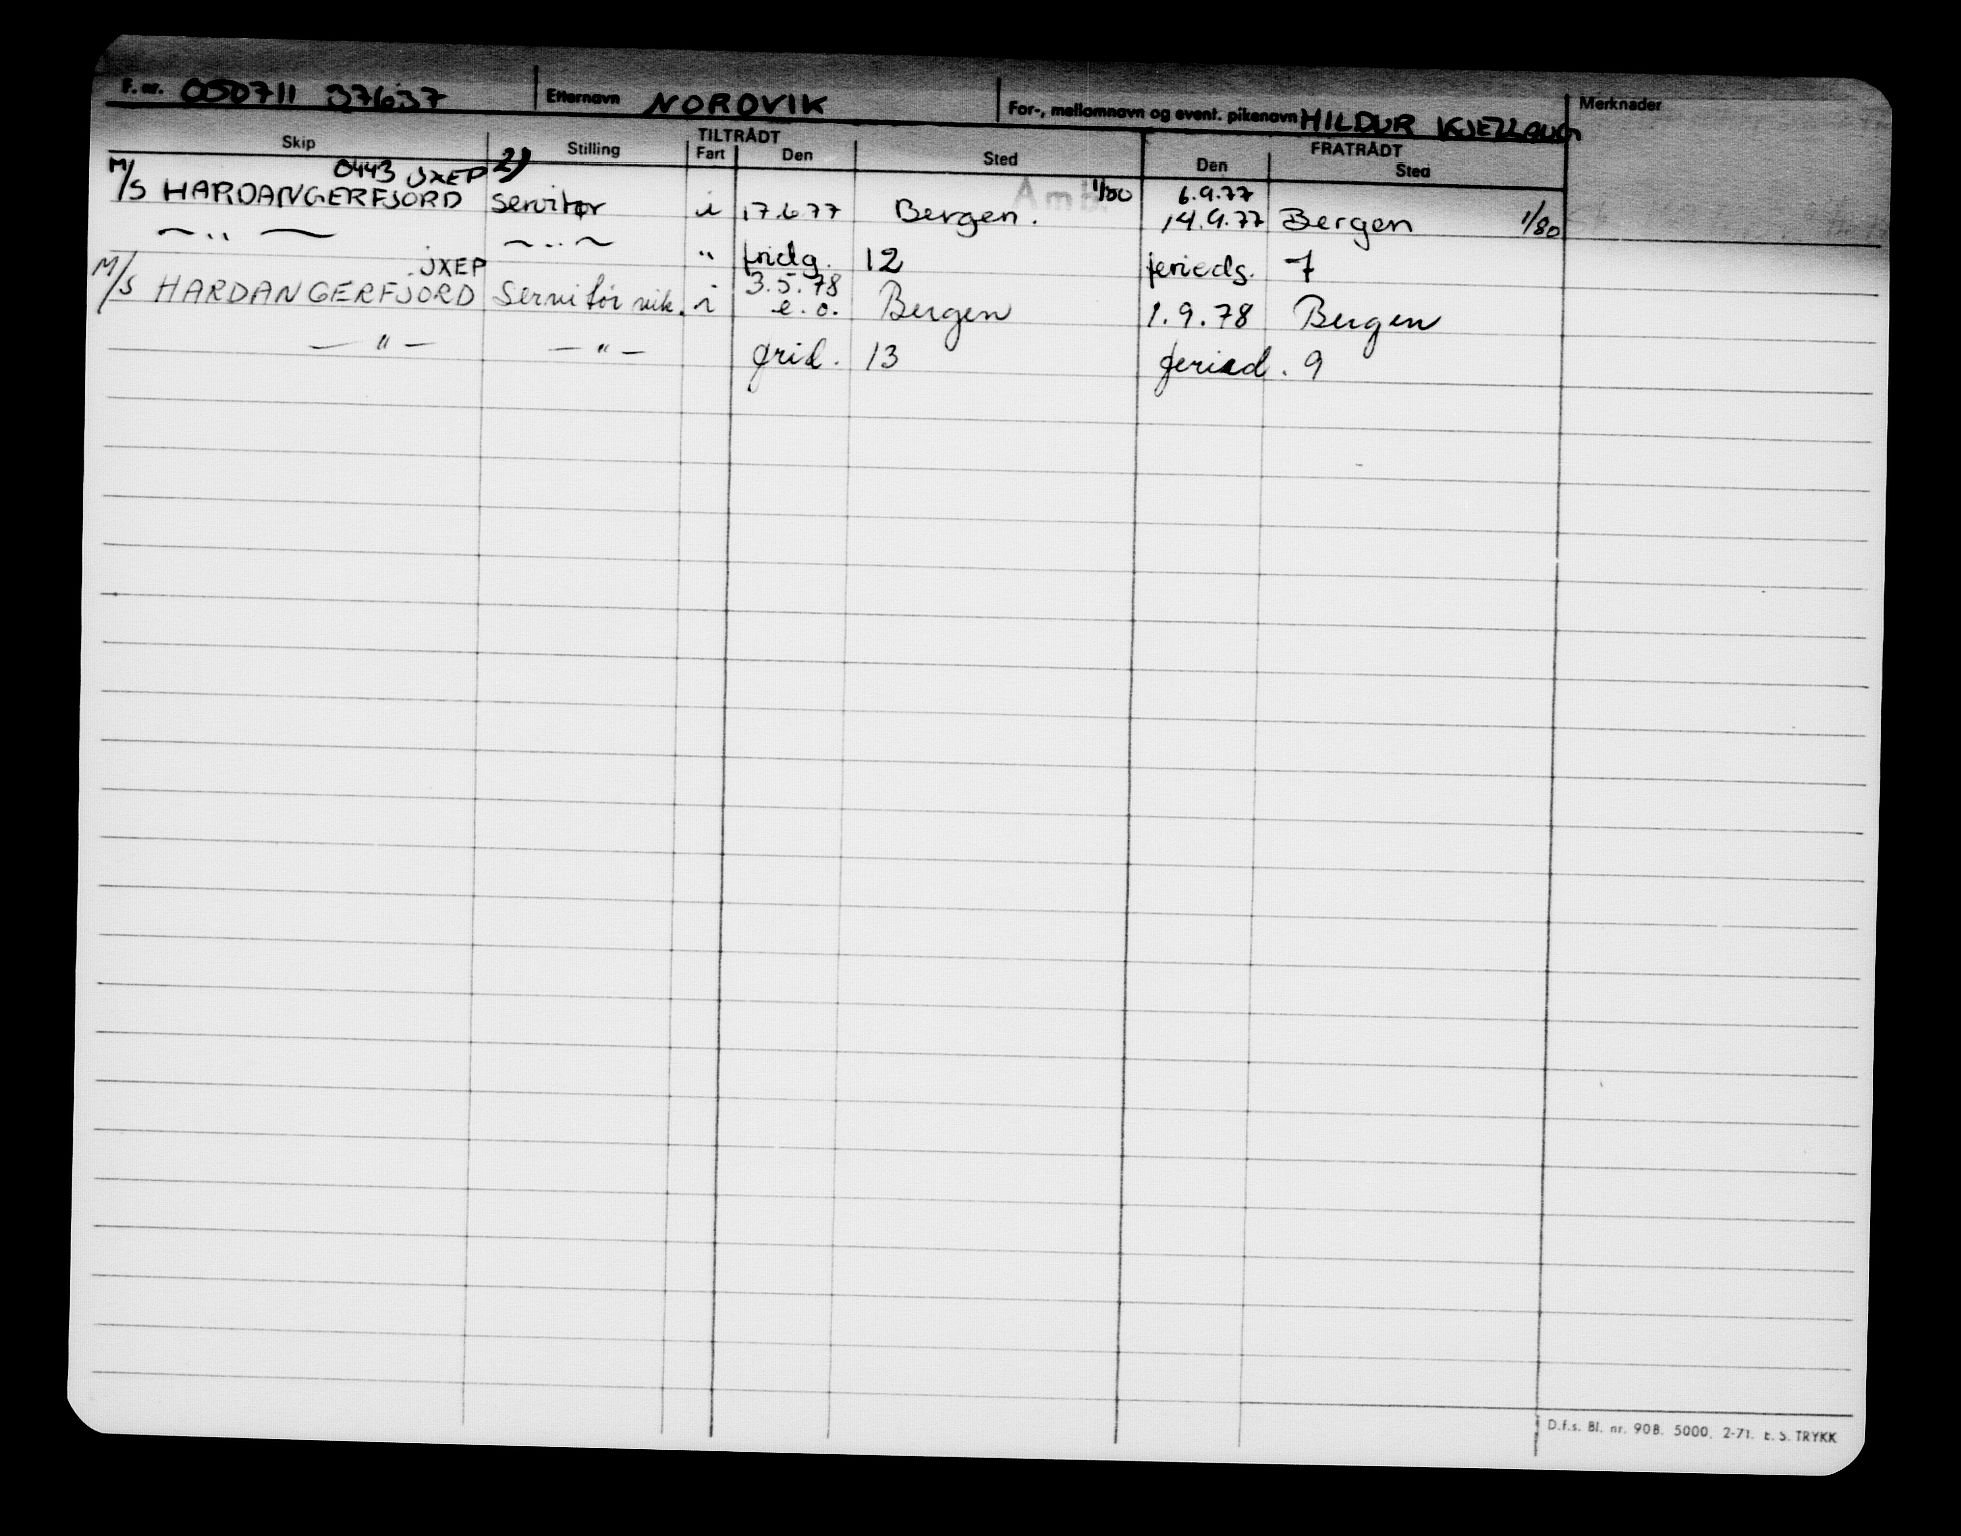 F. nr. 050711 37637 Etternavn NORDVIK For-, mellomnavn og event. pikenavn HILDUR KJELLAUG Merknader
TILTRÅDT FRATRÅDT
Skip Stilling Fart Den Sted Den Sted
0443 JXEP 2) 1/80 6.9.77
M/S HARDANGERFJORD Servitør i 17.6.77 Bergen. 14.9.77 Bergen 1/80
~ " ~ ~ " ~ " fridg. 12 ferieds. 7
JXEP 3.5.78
M/S HARDANGERFJORD Servitør vik. i e.o. Bergen 1.9.78 Bergen
— " — — " — frid. 13 feried. 9
D.f.s. Bl. nr. 90B. 5000. 2-71. E. S. TRYKK